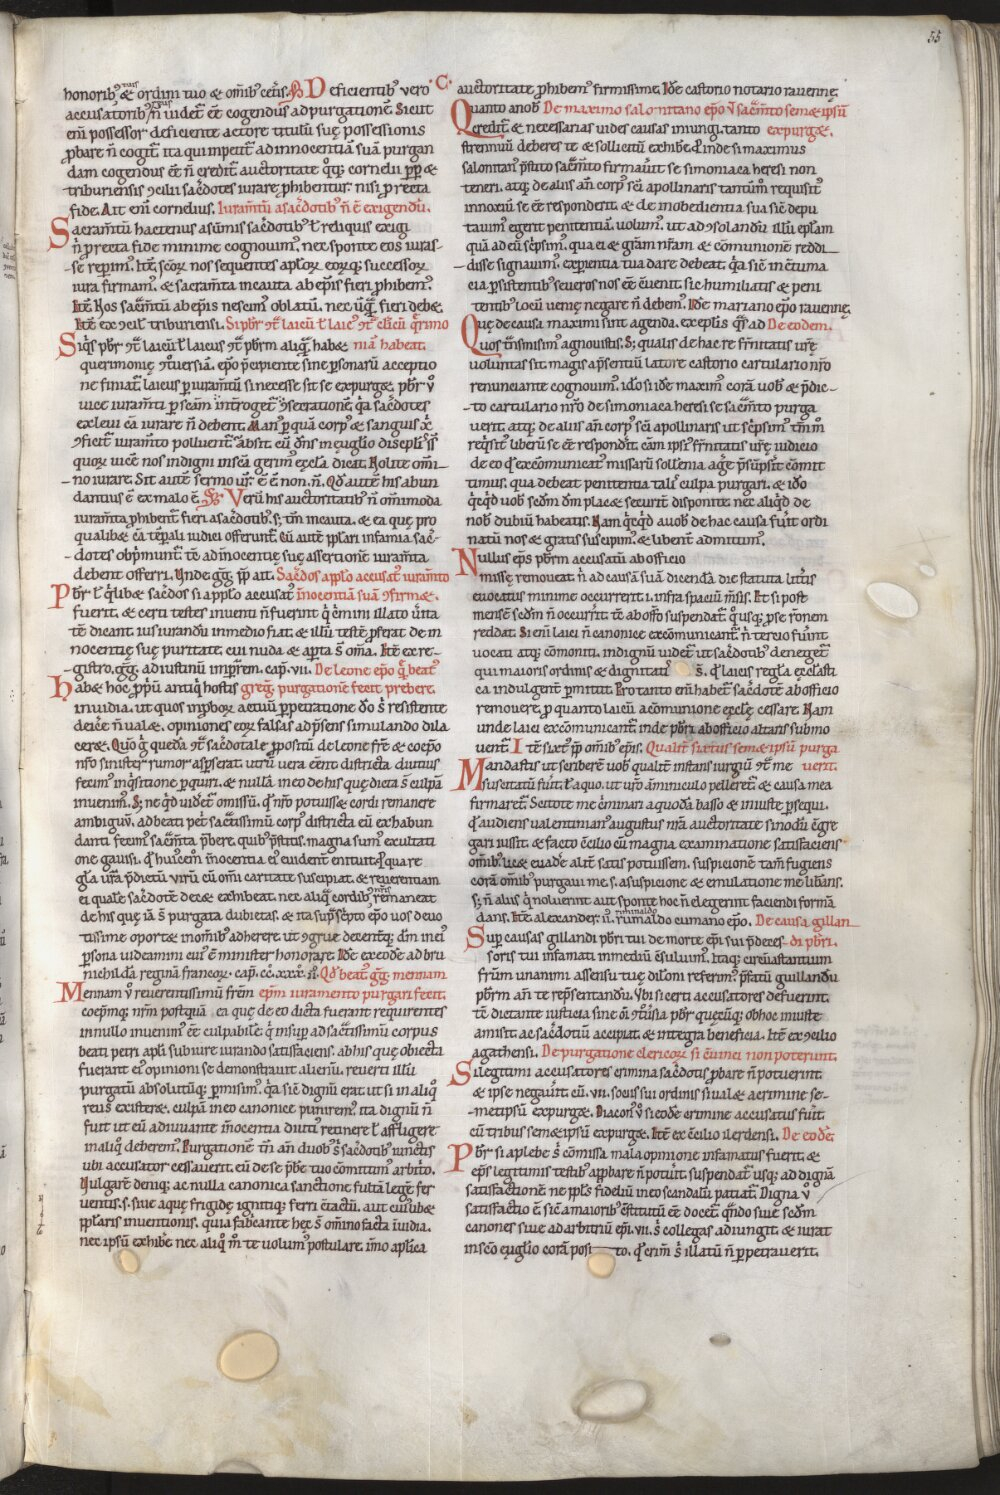 55
honorib; & ordini tuo & om̄ib; cęt̄is. D eficientib; vero
accusatorib; n̄ videt̄ ēe cogendus ad purgationē. Sicut
eni possessor deficiente actore titulū suę possessionis
ꝓbare n̄ cogit̄. ita qui impetit̄ ad innocentiā suā purgan
dam cogendus ēe n̄ credit̄. auctoritate
triburiensis ꝯcilii sac̄dotes iurare ꝓhibentur. nisi ꝓ recta
fide. Ait eni cornelius. Iuram̄tū a sac̄dotib; n̄ ēe exigendū.
Sacram̄tū hactenus a sūmis sac̄dotib; ł reliquis exigi
n̄ ꝓ recta fide minime cognovim;. nec sponte eos iuras
se repim;. Itē. nos sequentes apl̄or̄ eorq; successor̄
iura firmam;. & sacram̄ta incauta ab ep̄is fieri ꝓhibem;.
Itē Nos sac̄m̄tū ab ep̄is nescim; oblatū. nec fieri debe.
Itē ex ꝯcil̄ triburiensi. Si pb̄r ꝯt̄ laicū ł laic; ꝯt̄ cl̄icū q̄rimo
Siq̄s pb̄r ꝯt̄ laicū ł laicus ꝯt̄ pb̄rm aliq̄ habet niā habeat.
querimonię ꝯt̄versiā. ep̄o p̄cipiente sine personarū acceptio
ne finiat̄. laicus ꝑ iuram̄tū si necesse sit se expurget. pb̄r v̊
vice iuram̄ti ꝑ sc̄am int̄roget̄ ꝯsecrationē. q̄a sac̄dotes
ex levi cā iurare n̄ debent. Man; ꝑ quā corp; & sanguis
ꝯficit̄ iuram̄to polluent̄? absit. cū dn̄s in ęuglio discipl̄is
quor̄ vicē nos indigni in sc̄a gerim; ęccl̄a dicat. Nolite om̄i
no iurare. Sit autē sermo vr̄. ē ē non. n̄. Qd̄ autē his abun
dantius ē ex malo ē. Verū his auctoritatib; n̄ om̄imoda
iuram̄ta ꝓhibent̄ fieri a sac̄dotib;. s; tm̄ incauta. & ea quę pro
qualibet cā tēpali iudici offerunt̄. Cū autē ppl̄ari infamia sac̄
dotes obprimunt̄. te ad innocentię suę assertionē iuram̄ta
debent offerri. Unde ait. Sac̄dos a ppl̄o accusat; iuram̄to
Pb̄r ł q̄libet sac̄dos si a ppl̄o accusat; innocentiā suā ꝯfirmet.
fuerit. & certi testes inventi n̄ fuerint q̄ c̄mini illato v̄ita
tē dicant. ius iurandū in medio fiat. & illū testē ꝓferat de in
nocentię suę puritate. cui nuda & apta s̄ om̄ia. Itē ex re
gistro. ad iustinū cap̄. vii. De leone ep̄o q̄ beat;
habet hoc ꝓpriū antiq; hostis greḡ. purgationē fecit prebere.
invidia. ut quos inꝓbor̄ actuū ꝑpetratione resistente
deicē n̄ valet. opiniones eor̄ falsas ad p̄sens simulando dila
ceret. Quo quedā ꝯt̄ sac̄dotale ꝓpositū de leone fr̄e & coep̄o
nr̄o sinister rumor asperserat. utrū vera cēnt districta diutius
fecim; inq̄sitione pquiri. & nullā in eo de his quę dicta s̄ culpā
invenim;. S; ne q̄d videt̄ omissū. nr̄o potuisset cordi remanere
ambiguū. ad beati pet̄ sac̄tissimū corp; districta eū ex habun
danti fecim; sac̄m̄ta p̄bere. quib; p̄stitis. magna sum; exultati
one gavisi. q̄ hui;cem̄ innocentia ei; evident enituit. q̄ qua re
gl̄a vr̄a p̄dictū virū cū om̄i caritate suscipiat. & reverentiam
ei quale sac̄dotē decet exhibeat. nec aliq̄ cordib; remaneat
de his quę iā s̄ purgata dubietas. & ita sup̄sc̄pto ep̄o vos devo
tissime oportet in om̄ib; adherere. ut ꝯgrue decentq; dm̄ in ei;
ꝑsona videamini cui; ē minister honorare. Idē ex eode ad bru
nichildā reginā francor̄. cap̄. Qd̄ beat; mennam
Mennam v̊ reverentissimū fr̄em ep̄m iuramento purgari fecit.
coep̄mq; nr̄m postquā ea quę de eo dicta fuerant requirentes
in nullo invenim; ēe culpabilē. q̄ insup ad sac̄tissimū corpus
beati petri apl̄i sub iure iurando satisfaciens. ab his quę obiecta
fuerant ei; opinioni se demonstravit alienū. reverti illū
purgatū absolutūq; ꝑmisim;. q̄a sic̄ dignū erat ut si in aliq̄
reus existeret. culpā in eo canonice punirem;. ita dignū n̄
fuit ut eū adiuvante innocentia diuti; retinere ł affligere
in aliq̄ deberem;. Purgationē tn̄ an̄ duob; s̄ sac̄dotib; iunctis
ubi accusator cessaverit. eū de se p̄be tuo comittim; arbit̄o.
Vulgarē deniq; ac nulla canonica sanctione fultā legē. fer
ventis. s. sive aque frigidę ignitiq; ferri c̄tactū. aut cui;libet
ppl̄aris inventionis. quia fabricante hec s̄ om̄ino facta īvidia.
nec ipsū exhibe. nec aliq̄ m̊ te volum; postulare. imo apl̄ica
auctoritate ꝓhibem; firmissime. Idē castorio notario ravennę.
Quanto a nob; De maximo salonitano ep̄o v̄ sac̄m̄to semet ipsū
credit̄ & necessarias vides causas iniungi. tanto expurget.
strenuū deberes te & sollicitū exhibe. Proinde si maximus
salonitan; p̄stito sac̄m̄to firmav̄it se simoniaca heresi non
teneri. atq; de aliis an̄ corp; sc̄i apollinaris tantūm; requisit;
innoxiū se ēe responderit & de inobedientia sua sic̄ depu
tavim; egerit penitentiā. volum;. ut ad ꝯsolandū illū epl̄am
quā ad eū sc̄psim;. qua ei & grām nr̄am & comunionē reddi
disse signavim;. experientia tua dare debeat. q̄a sic̄ in c̄tuma
cia ꝑsistentib; severos nos ēe c̄venit. sic humiliatis & peni
tentib; locū venię negare n̄ debem;. Idē mariano ep̄o ravennę.
Quę de causa maximi sint agenda. ex epl̄is q̄s ad De eodem.
vos tn̄smisim; agnovistis. S; qualis de hac re fr̄nitatis vr̄ę
voluntas sit. magis ap̄sentiū latore castorio cartulario nr̄o
renunciante cognovim;. Ido si idē maxim; corā vob; & p̄dic
to cartulario nr̄o de simoniaca heresi se sac̄m̄to purga
verit. atq; de aliis an̄ corp; sc̄i apollinaris ut sc̄psim; tm̄m
reqisit; liberū se ēe respondit̄. cām ipsi; fr̄nitatis vr̄ę iudicio
de eo q̄ excōmunicat; missarū sollenia ag̊e p̄sūpsit̄ comit
timus. qua debeat penitentia tali culpa purgari. & ido
q̄cq̄d vob; sc̄dm dm̄ placet securit̄ disponite. nec aliq̄d de
nob; dubiū habeatis. Nam q̄cq̄d a vob; de hac causa fuit ordi
natū nos & gratis suscipim; & libent̄ admittim;.
Nullus ep̄s pb̄rm accusatū ab officio
missę removeat. n̄ ad causā suā dicendā die statuta litt̄is
evocatus minime occurrerit. i. infra spaciū m̄sis. Et si post
mensē sc̄dm n̄ occurrit̄. te ab officio suspendat̄. q̊usq; p̄se r̄onem
reddat. Si eni laici n̄ canonice excōmunicant̄. n̄ tercio fuint
vocati atq; comoniti. indignū videt̄ ut sac̄dotib; deneget̄
qui maioris ordinis & dignitati s̄. q̄ laicus regl̄a ęccl̄asti
ca indulgent̄ ꝑmittit. Pro tanto eni habet̄ sac̄dotē ab officio
removere. ꝑ quanto laicū a cōmunione ęccl̄ę cessare. Nam
unde laici excōmunicant̄. inde pb̄ri ab officio altaris submo
vent̄. I tē sixt; om̄ib; ep̄is. Qualit̄ sixtus semet ipsū purga
Mandastis ut scriberē vob; qualit̄ instans iurgiū ꝯt̄ me verit.
suscitatū fuit. ł a quo. ut vr̄o am̄iniculo pelleret̄. & causa mea
firmaret̄. Scitote me c̄minari a quodā basso & iniuste ꝑsequi.
q̄ audiens valentinian; augustus nr̄a auctoritate sinodū c̄gre
gari iussit. & facto c̄cilio cū magna examinatione satisfaciens
om̄ib; licet evade alit̄ satis potuissem. suspicionē tam̄ fugiens
corā om̄ib; purgavi me. s. a suspicione & emulatione me lib̄ans.
s; n̄ aliis q̄ noluerint aut sponte hoc n̄ elegerint faciendi formā
dans. Itē alexander. ii. rumaldo cumano ep̄o. De causa gillan
Sup causas gillandi pb̄ri tui de morte ep̄i sui p̄deces di pb̄ri.
soris tui infamati in mediū c̄sulum;. Itaq; circūstantium
fr̄rūm unanimi assensu tuę dil̄oni referim;. p̄fatū guillandū
pb̄rm an̄ te rep̄sentandū. Ubi si certi accusatores defuerint.
tē dictante iusticia sine om̄i ꝯt̄v̄sia pb̄r quęcūq; ob hoc iniuste
amisit. ac sac̄dotiū accipiat. & integra beneficia. Itē ex ꝯcilio
agathensi. De purgatione clericor̄ si c̄vinci non poterunt.
Si legitimi accusatores crimina sac̄dotis ꝓbare n̄ potuerint.
& ipse negav̄it. cū. vii. sociis sui ordinis si valet a crimine se
metipsū expurget. Diacon; v̊ si eodē crimine accusatus fuit.
cū tribus semet ipsū expurget. Itē ex c̄cilio ilerdensi. De eodē.
Pb̄r si a plebe s̄ comissa mala opinione infamatus fuerit. &
ep̄s legitimis testib; approbare n̄ potuit. suspendat̄ usq; ad dignā
satisfactionē. ne ppl̄s fideliū in eo scandalū patiat̄. Digna v̊
satisfactio ē. sic̄ a maiorib; c̄stitutū ēe docet̄. q̄ndo sive sc̄dm
canones sive ad arbitriū ep̄i. vii. s̄ collegas adiungit. & iurat
in sc̄o ęuglio corā posito. q̄ crim̄ s̄ illatū n̄ ꝑpetraverit.